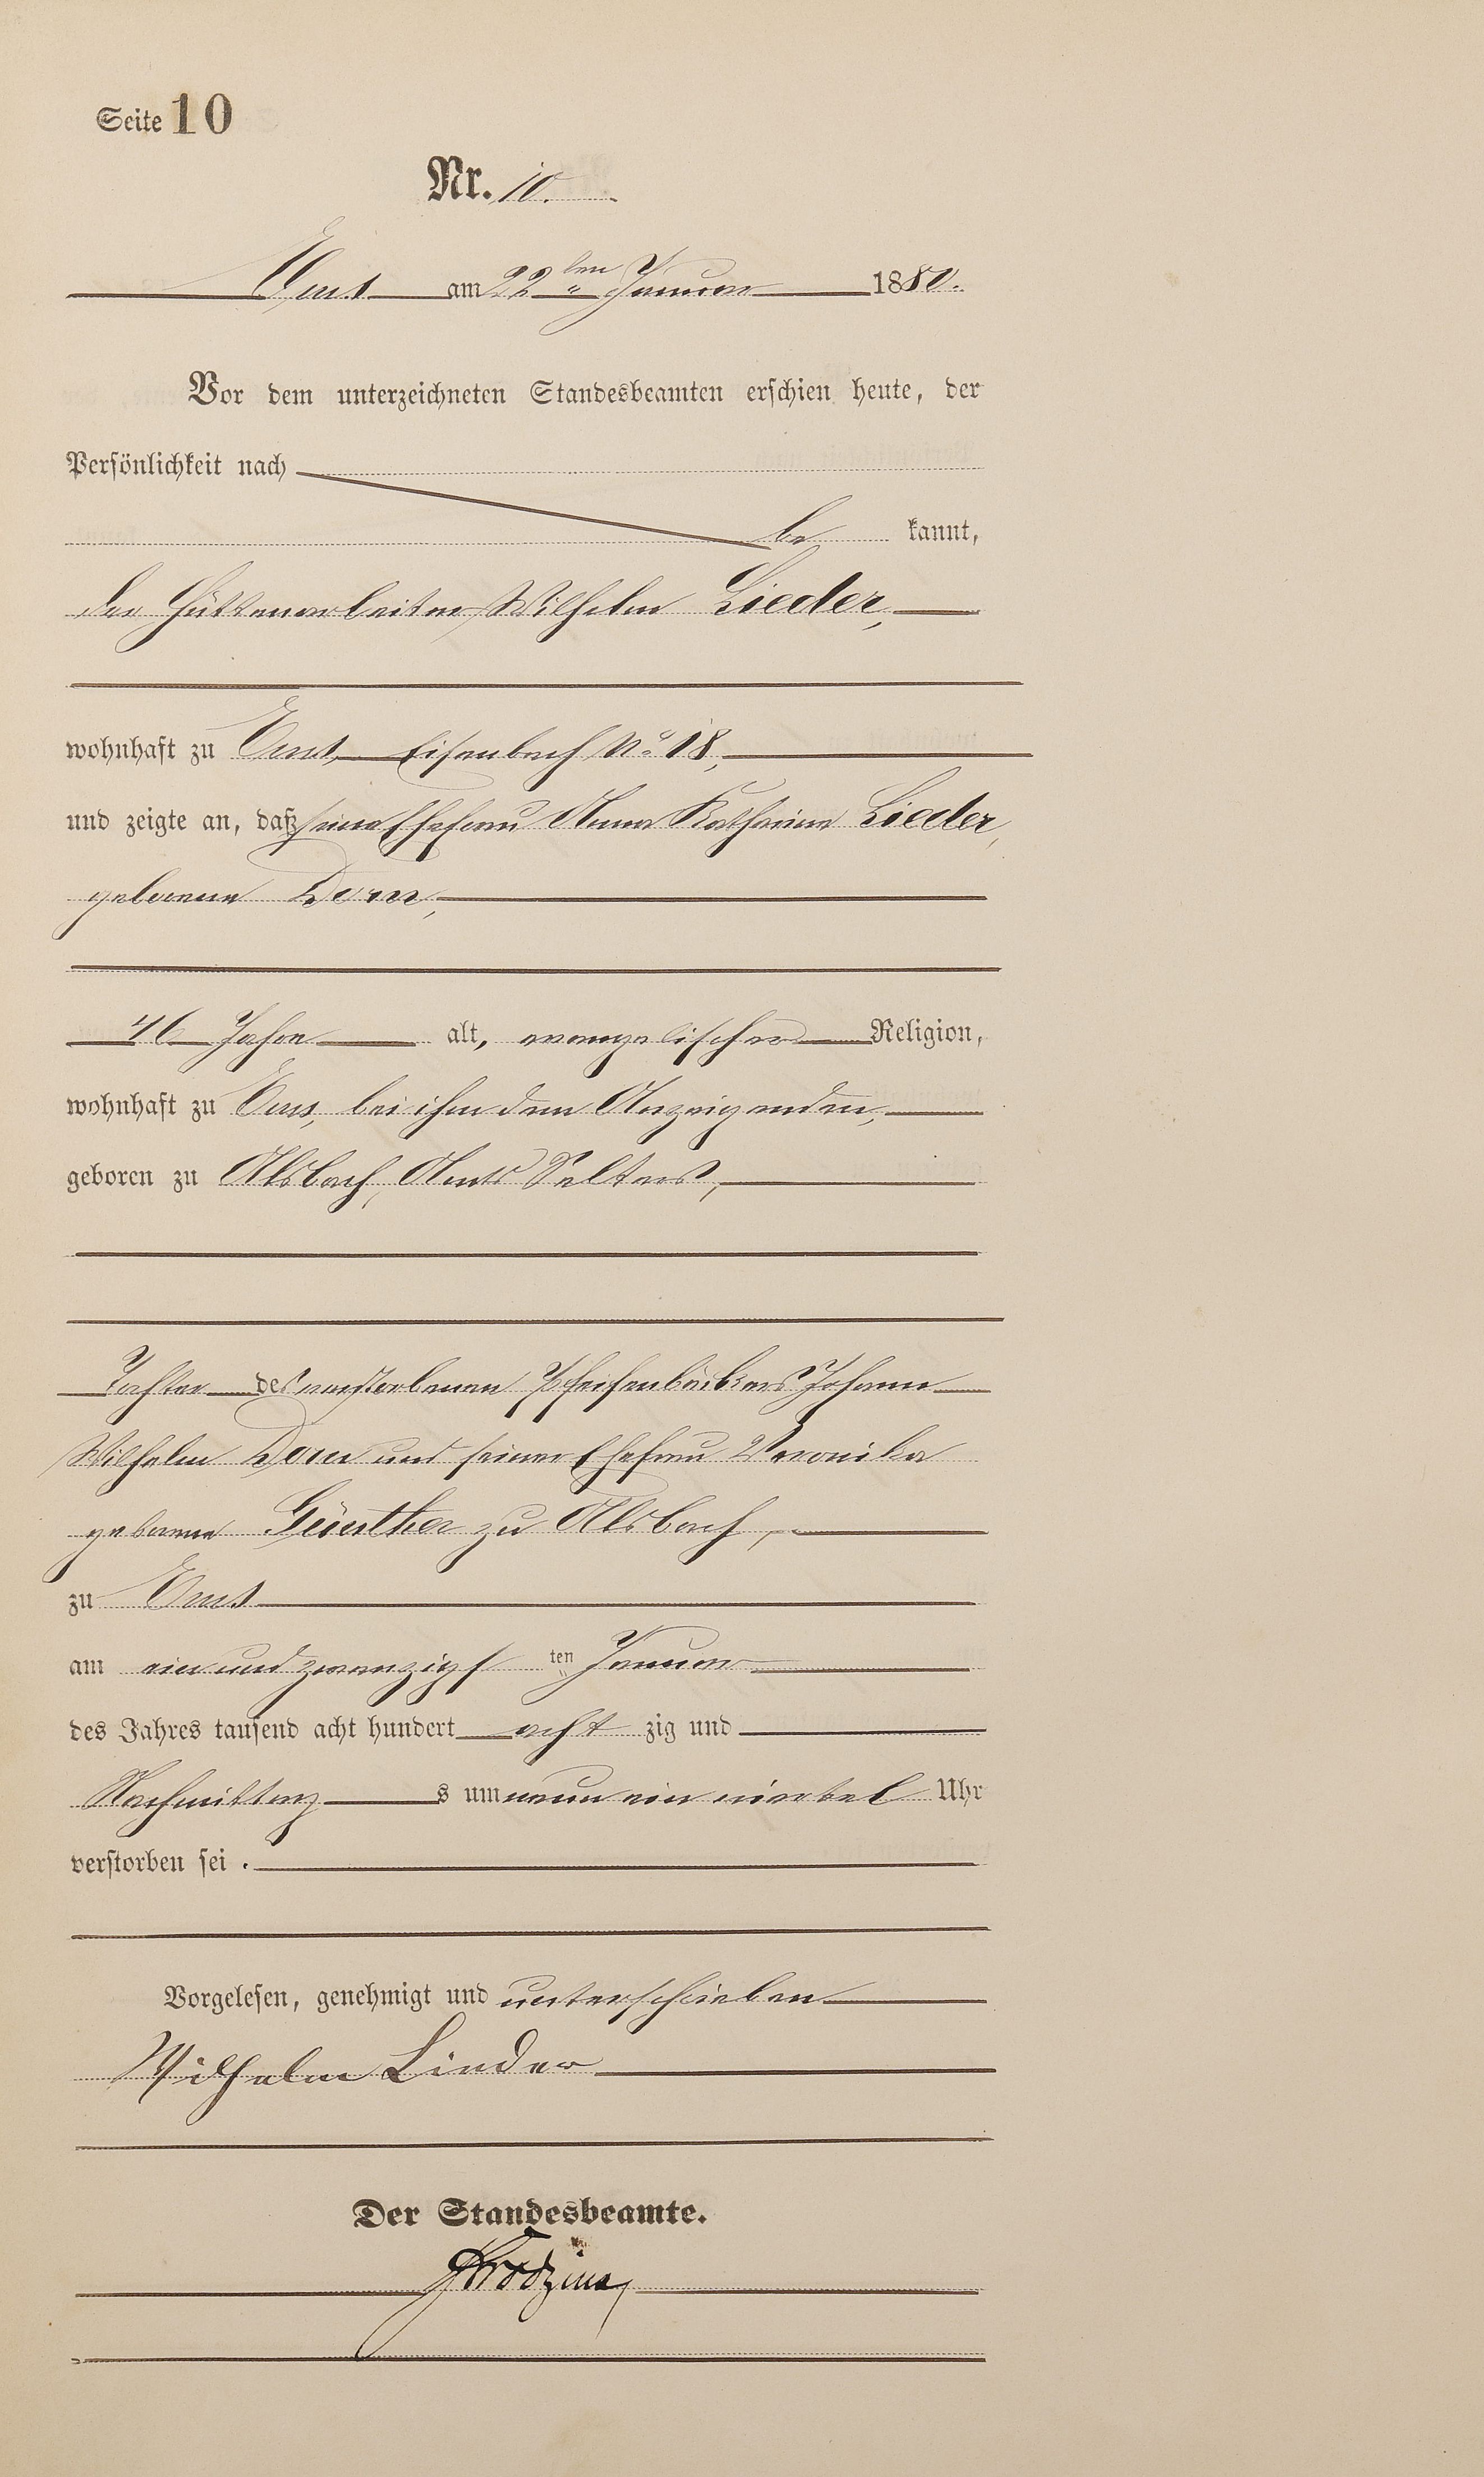 Seite 10
Nr. 10.
Ems am 22ten Januar 1880.
Vor dem unterzeichneten Standesbeamten erschien heute, der
Persönlichkeit nach
be kannt,
der Hüttenarbeiter Wilhelm Lieder,
wohnhaft zu Ems, Eisenbach No 18,
und zeigte an, daß seine Ehefrau Anna Katharina Lieder,
geborene Dorn,
46 Jahre alt, evangelischer Religion,
wohnhaft zu Ems, bei ihm dem Anzeigenden,
geboren zu Alsbach, Amts Selters,
Tochter des verstorbenen Pfeifenbäckers Johann
Wilhelm Dorn und seiner Ehefrau Veronika
geborene Günther zu Alsbach,
zu Ems
am ein und zwanzigs ten Januar
des Jahres tausend acht hundert acht zig und
Nachmittag s um neun ein viertel Uhr
verstorben sei.
Vorgelesen, genehmigt und unterschrieben
Wilhelm Lieder
Der Standesbeamte.